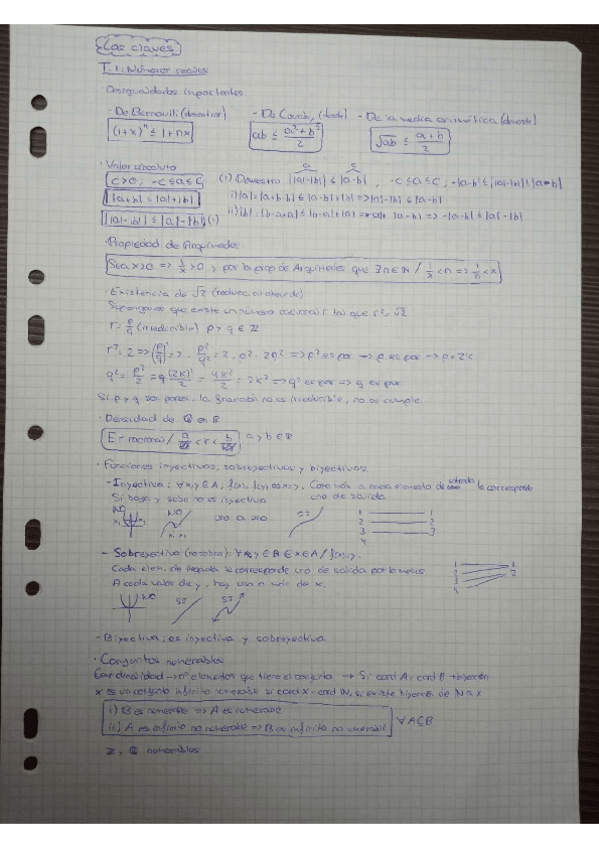 Las claves
T.1: Números reales
· Desigualdades importantes
- De Bernouilli (demostrar) - De Cauchy - De la media aritmética (demostr)
(1+x)ⁿ ≤ 1+nx ab ≤ (a²+b²)/2 √ab ≤ (a+b)/2
· Valor absoluto
c>0; -c≤a≤c (1) Demuestro ||a|-|b|| ≤ |a-b|
|a+b| ≤ |a|+|b| i) |a| = |a+b-b| ≤ |a-b|+|b| => |a|-|b| ≤ |a-b|
||a|-|b|| ≤ |a|-|b| (1) ii) |b| = |b-a+a| ≤ |b-a|+|a| => |a-b| => -|a-b| ≤ |a|-|b|
· Propiedad de Arquímedes
Sea x>0 => 1/x >0 y por la prop de Arquímedes que ∃n∈N / 1/x <n => 1/n <x
· Existencia de √2 (reducción absurdo)
Supongamos que existe un número racional r tal que r²=√2
r= p/q (irreducible) p y q ∈ Z
r²=2 => (p/q)²=2 p²/q²=2 2q²=p² => p² es par → p es par → p=2k
q²= p²/2 => q²= (2k)²/2 = 4k²/2 = 2k² => q² es par => q es par
Si p y q son pares, la fracción no es irreducible, no se cumple.
· Densidad de Q en R
E = racional / a < r < b a y b ∈ R
· Funciones inyectivas, sobreyectivas y biyectivas
- Inyectiva: ∀x,y∈A, f(x)=f(y) x=y. Como máx a cada elemento de entrada le corresponde
Si baja y sube no es inyectiva uno de salida
NO NO uno a uno SI 1 2 3 4 1 2 3
- Sobreyectiva (no sobra): ∀y∈B ∃x∈A / f(x)=y.
Cada elem. de llegada le corresponde uno de salida por lo menos
A cada valor de y, hay un valor de x.
NO SI SI 1 2 3 4 1 2
- Biyectiva: es inyectiva y sobreyectiva
· Conjuntos numerables
Cardinalidad → nº elementos que tiene el conjunto → Si card A = card B → biyección
x es un conjunto infinito numerable si card X = card N, si existe biyección de N a x
i) B es numerable => A es numerable
ii) A es infinito no numerable => B es infinito no numerable ∀A⊆B
Z, Q numerables